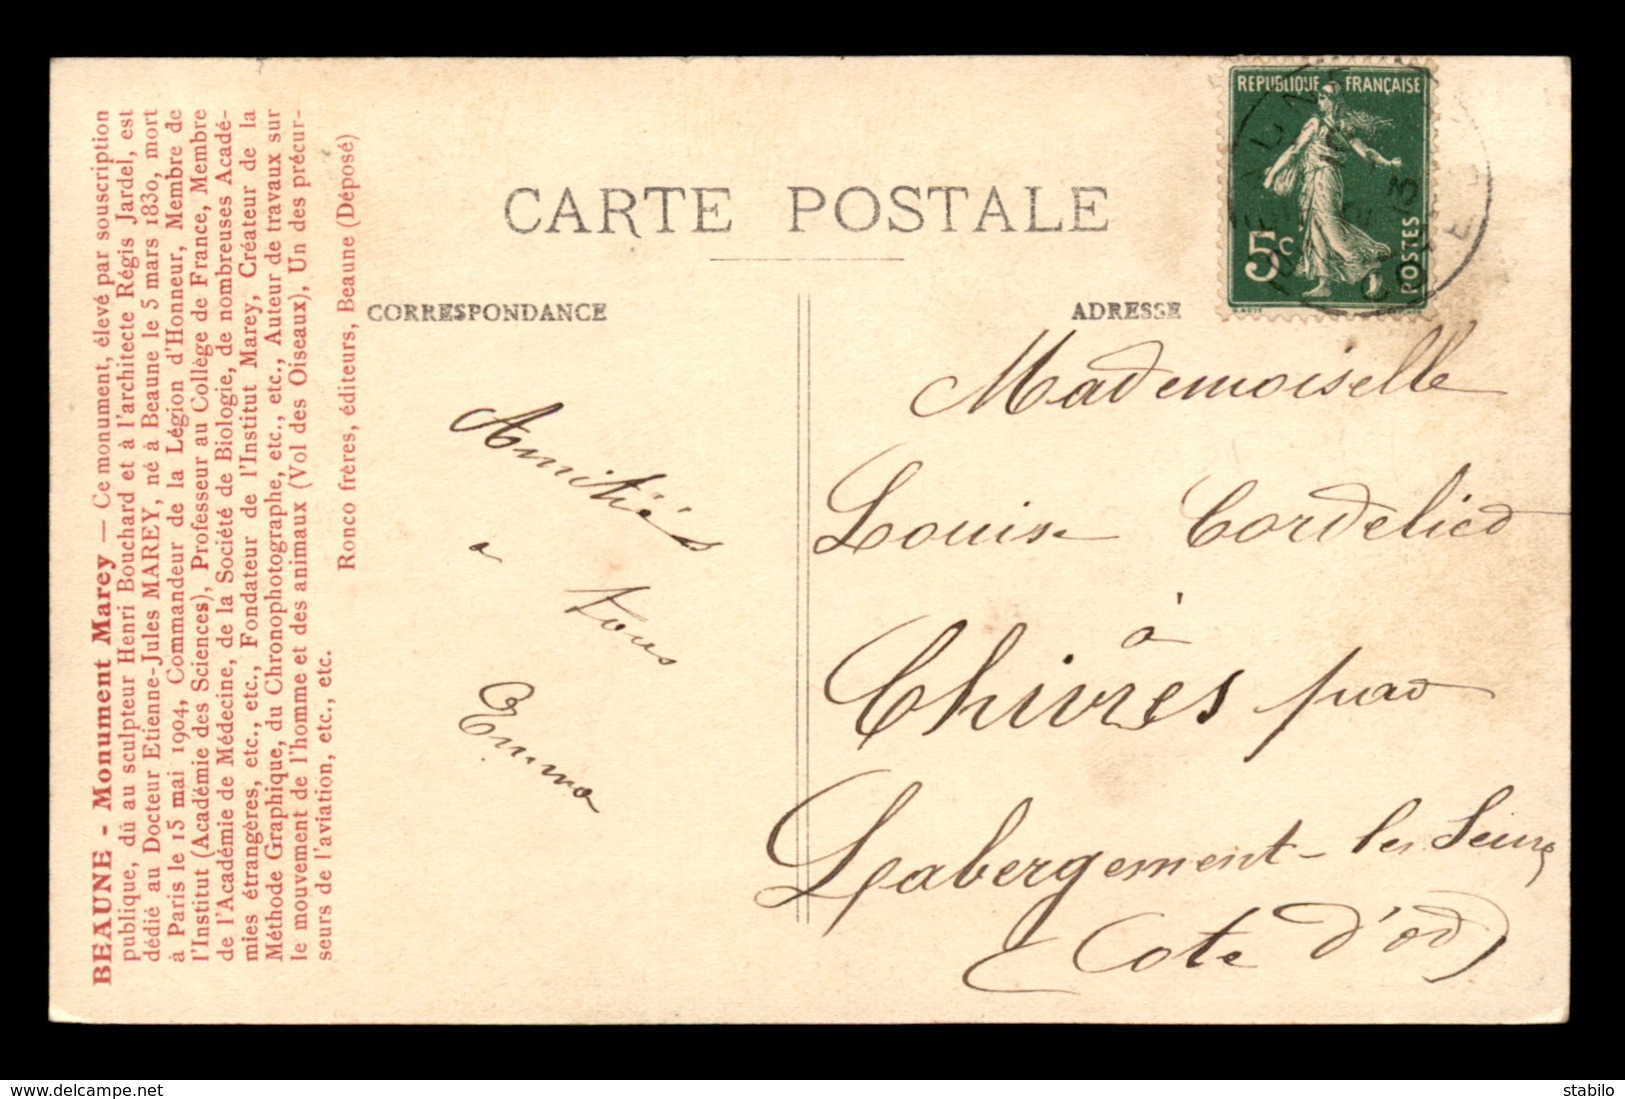 BEAUNE - Monument Marey — Ce monument, élevé par souscription
publique, dû au sculpteur Henri Bouchard et à l'architecte Régis Jardel, est
dédié au Docteur Etienne-Jules MAREY, né à Beaune le 5 mars 1830, mort
à Paris le 15 mai 1904, Commandeur de la Légion d'Honneur, Membre de
l'Institut (Académie des Sciences), Professeur au Collège de France, Membre
de l'Académie de Médecine, de la Société de Biologie, de nombreuses Acadé-
mies étrangères, etc., etc., Fondateur de l'Institut Marey, Créateur de la
Méthode Graphique, du Chronophotographe, etc., etc., Auteur de travaux sur
le mouvement de l'homme et des animaux (Vol des Oiseaux), Un des précur-
seurs de l'aviation, etc., etc.
Ronco frères, éditeurs, Beaune (Déposé)
CARTE POSTALE
CORRESPONDANCE
Amitiés
a tous
Emma
ADRESSE
REPUBLIQUE FRANÇAISE
5c
POSTES
Mademoiselle
Louise Cordelier
à
Chivres par
Labergement-les Seurre
(Cote d'or)
delcampe.net
stabilo